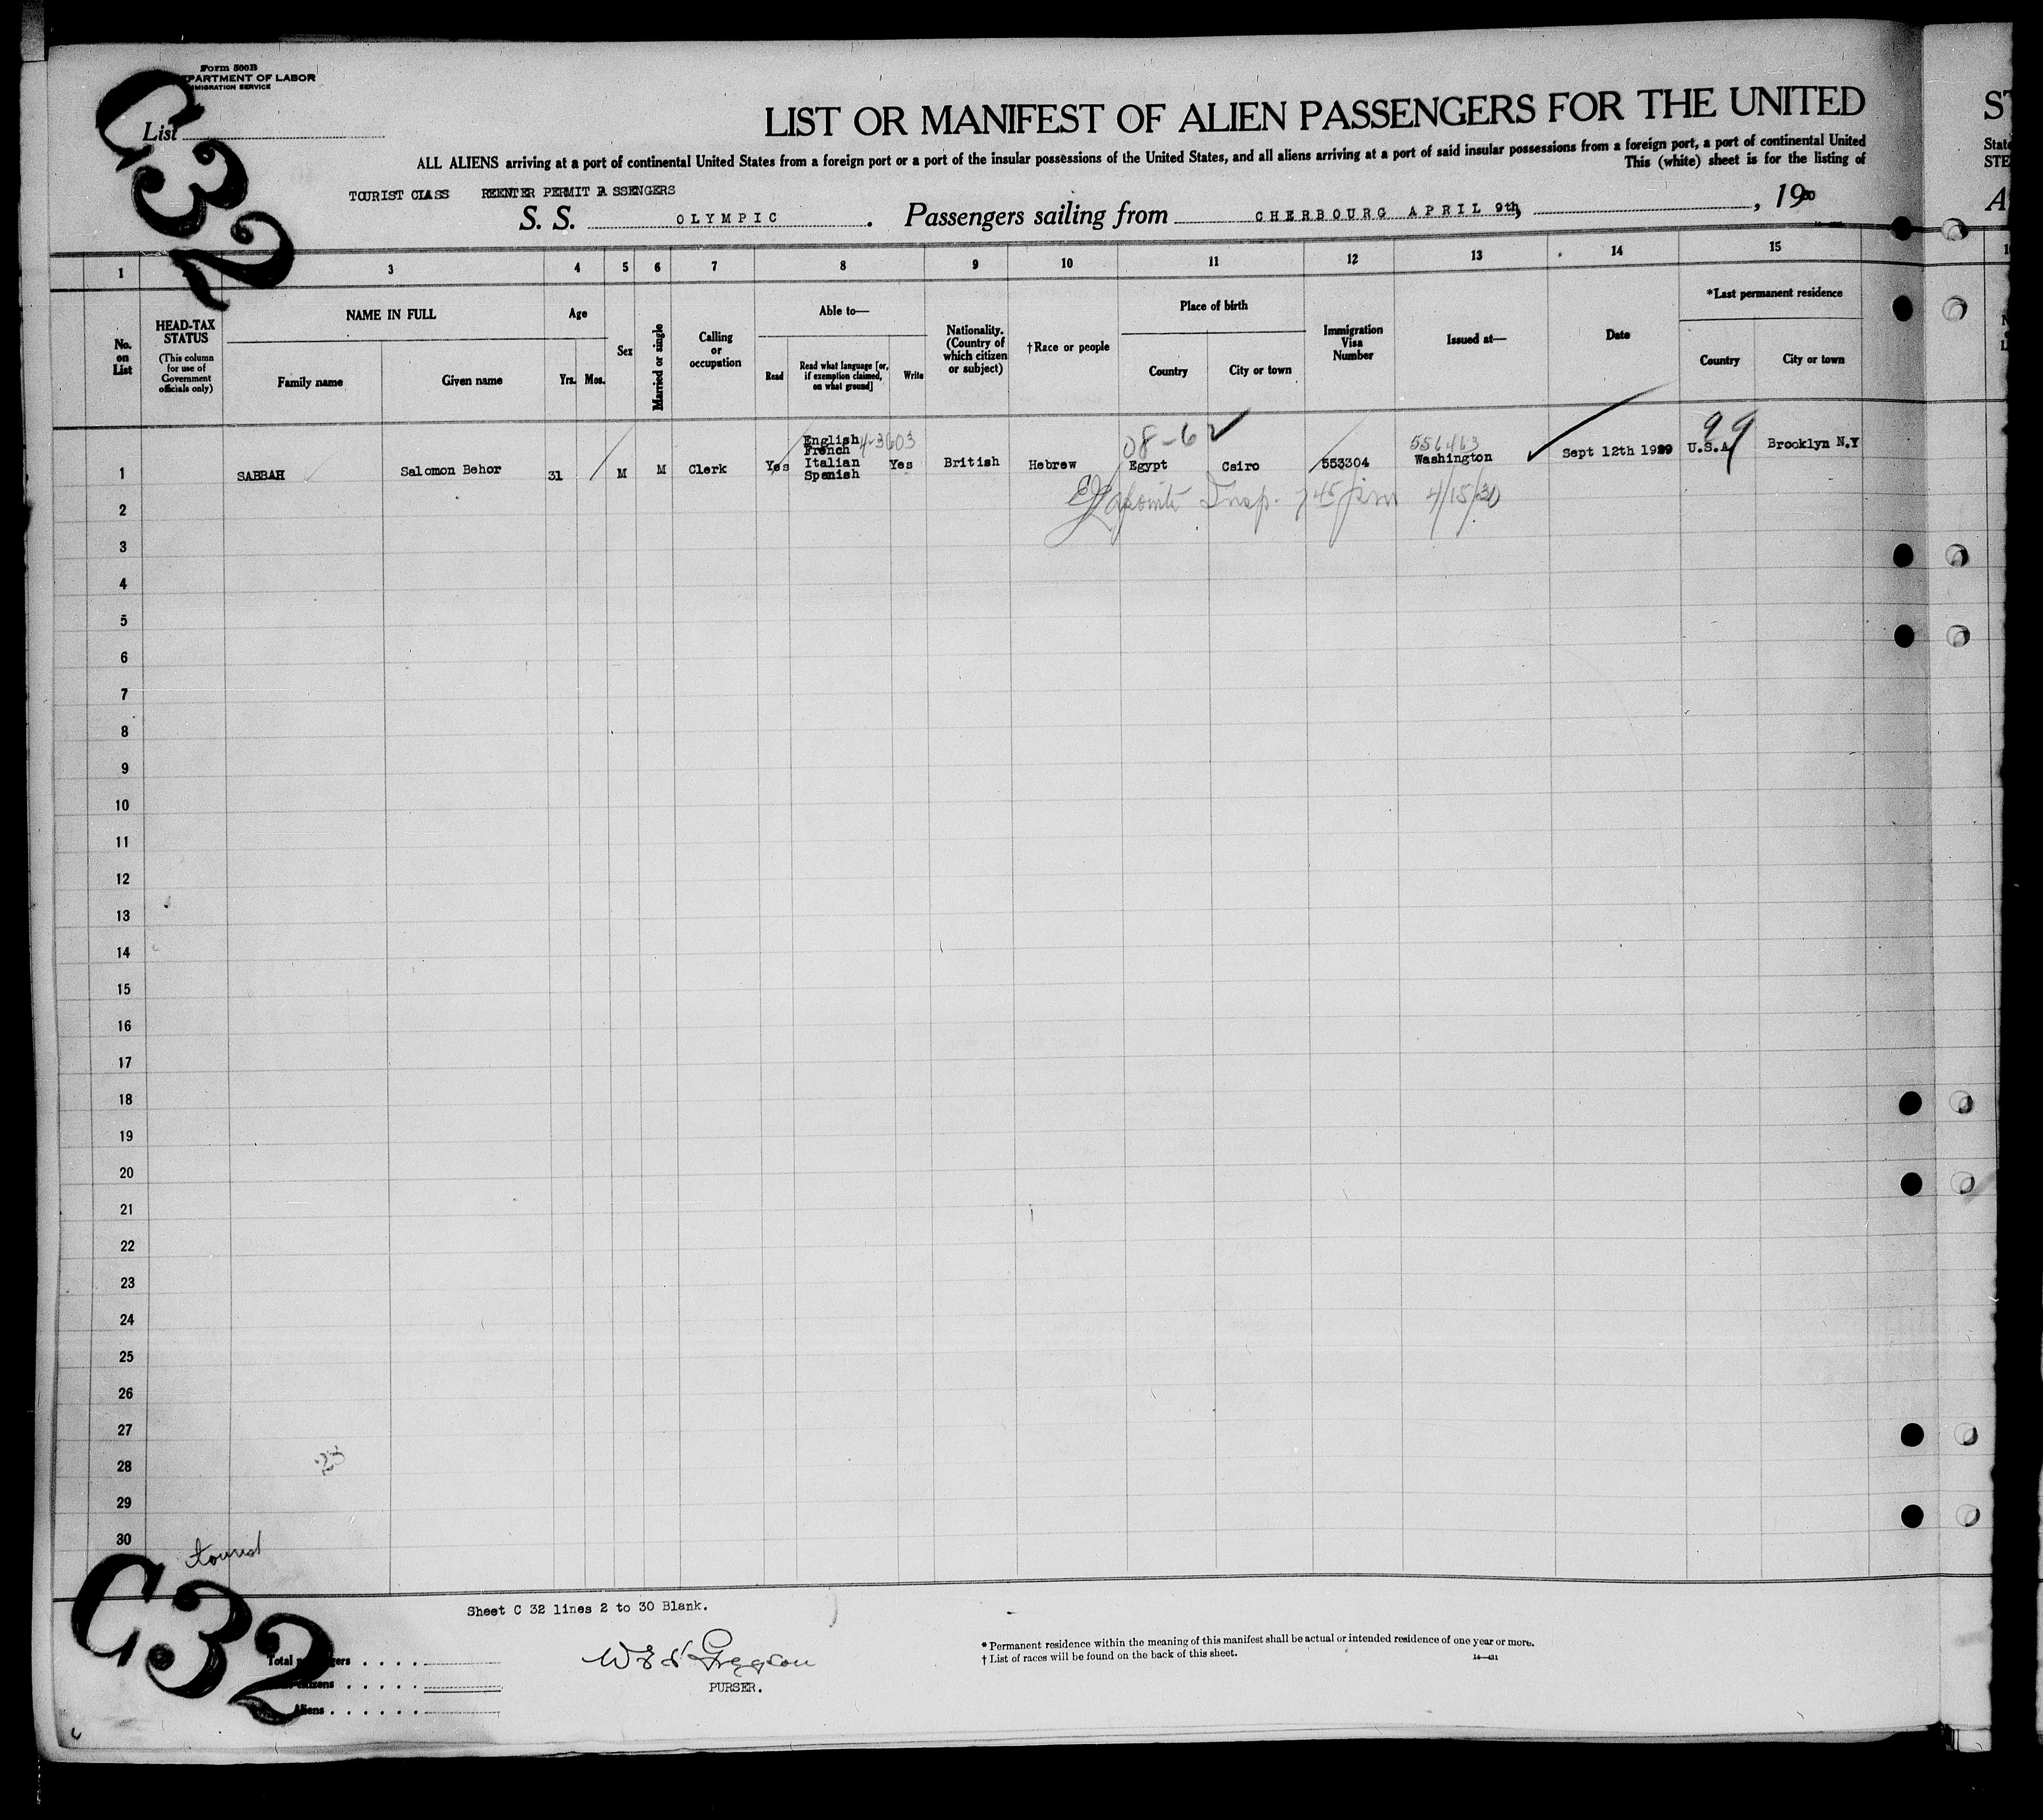 Form 500B
DEPARTMENT OF LABOR
IMMIGRATION SERVICE
C32
List
LIST OR MANIFEST OF ALIEN PASSENGERS FOR THE UNITED
ST
ALL ALIENS arriving at a port of continental United States from a foreign port or a port of the insular possessions of the United States, and all aliens arriving at a port of said insular possessions from a foreign port, a port of continental United
State
This (white) sheet is for the listing of
STE
TOURIST CLASS REENTER PERMIT PA SSENGERS
S. S. OLYMPIC . Passengers sailing from CHERBOURG APRIL 9th, , 1930
A
1 3 4 5 6 7 8 9 10 11 12 13 14 15
No. on List
HEAD-TAX STATUS
(This column for use of Government officials only)
NAME IN FULL
Family name
Given name
Age
Yrs. Mos.
Sex
Married or single
Calling or occupation
Able to—
Read
Read what language [or, if exemption claimed, on what ground]
Write
Nationality. (Country of which citizen or subject)
†Race or people
Place of birth
Country
City or town
Immigration Visa Number
Issued at—
Date
*Last permanent residence
Country
City or town
08-62
556463
99
4-3603
1 SABBAH Salomon Behor 31 M M Clerk Yes English French Italian Spanish Yes British Hebrew Egypt Cairo 553304 Washington Sept 12th 1929 U.S.A Brooklyn N.Y
Insp. 745 pm 4/15/30
2
3
4
5
6
7
8
9
10
11
12
13
14
15
16
17
18
19
20
21
22
23
24
25
26
27
28
29
30
tourist
C32
Sheet C 32 lines 2 to 30 Blank.
Gregson
PURSER.
Total passengers
citizens
Aliens
* Permanent residence within the meaning of this manifest shall be actual or intended residence of one year or more.
† List of races will be found on the back of this sheet.
14—431